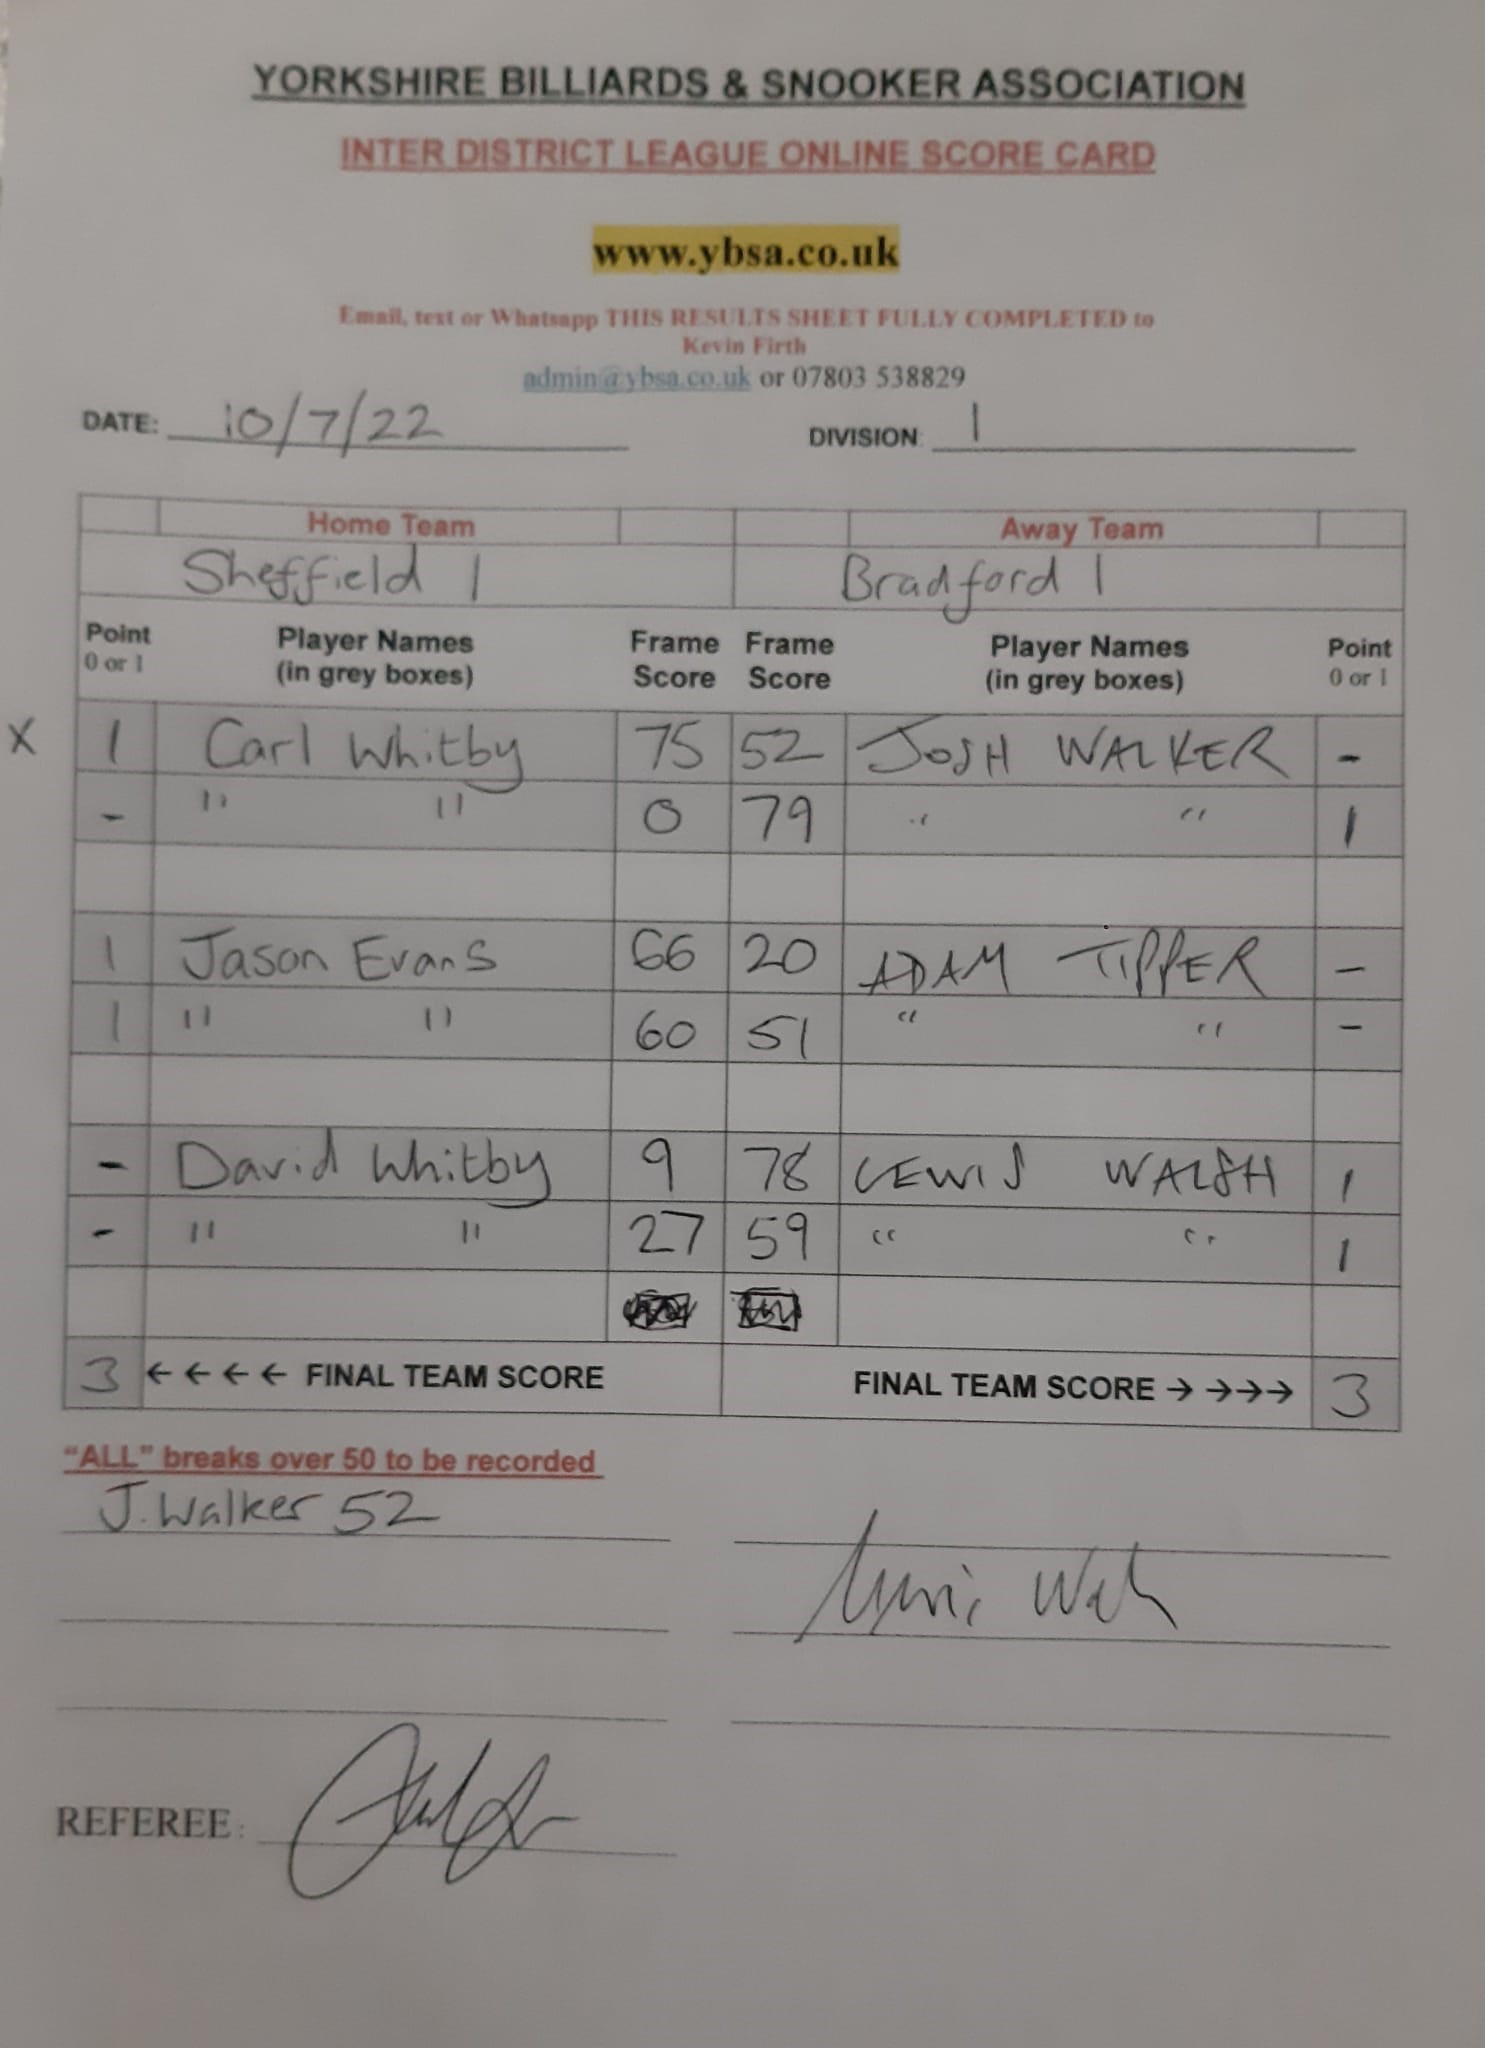 YORKSHIRE BILLIARDS & SNOOKER ASSOCIATION
INTER DISTRICT LEAGUE ONLINE SCORE CARD
www.ybsa.co.uk
Email, text or Whatsapp THIS RESULTS SHEET FULLY COMPLETED to
Kevin Firth
admin@ybsa.co.uk or 07803 538829
DATE: 10/7/22 DIVISION: 1
Home Team Away Team
Sheffield 1 Bradford 1
Point Player Names Frame Frame Player Names Point
0 or 1 (in grey boxes) Score Score (in grey boxes) 0 or 1
X 1 Carl Whitby 75 52 JOSH WALKER -
- " " 0 79 " " 1
1 Jason Evans 66 20 ADAM TIPPER -
1 " " 60 51 " " -
- David Whitby 9 78 LEWIS WALSH 1
- " " 27 59 " " 1
3 ←←←← FINAL TEAM SCORE FINAL TEAM SCORE → →→→ 3
"ALL" breaks over 50 to be recorded
J. Walker 52
REFEREE: